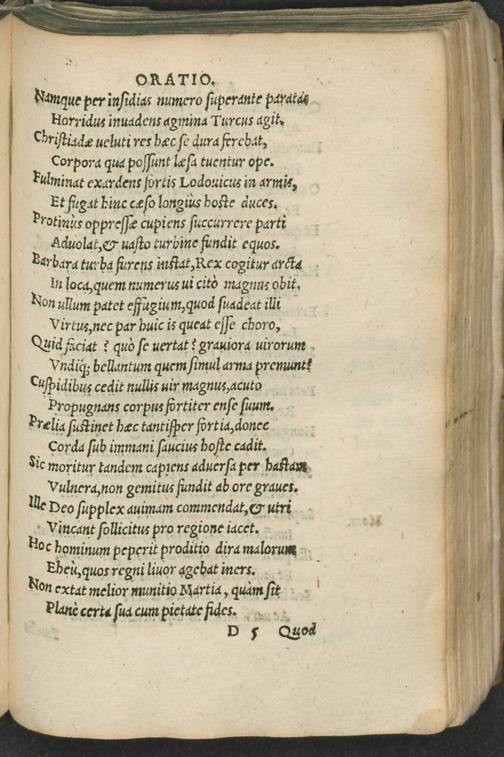 ORATIO.
Namque per insidias numero superante paratas
Horridus invadens agmina Turcus agit.
Christiadæ ueluti res hæc se dura ferebat,
Corpora qua possunt læsa tuentur ope.
Fulminat exardens fortis Lodovicus in armis,
Et fugat hinc cæso longius hoste duces.
Protinus oppressæ cupiens succurrere parti
Aduolat, & uasto turbine fundit equos.
Barbara turba furens instat, Rex cogitur arcta
In loca, quem numerus ui citò magnus obit.
Non ullum patet effugium, quod suadeat illi
Virtus, nec par huic is queat esse choro,
Quid faciat? quò se vertat? graviora uirorum
Vndiq́; bellantum quem simul arma premunt?
Cuspidibus cedit nullis uir magnus, acuto
Propugnans corpus fortiter ense suum.
Prælia sustinet hæc tantisper fortia, donec
Corda sub immani saucius hoste cadit.
Sic moritur tandem capiens aduersa per hastam
Vulnera, non gemitus fundit ab ore graues.
Ille Deo supplex auimam commendat, & utri
Vincant sollicitus pro regione iacet.
Hoc hominum peperit proditio dira malorum
Eheù, quos regni liuor agebat iners.
Non extat melior munitio Martia, quàm sit
Planè certa sua cum pietate fides.
D 5 Quod